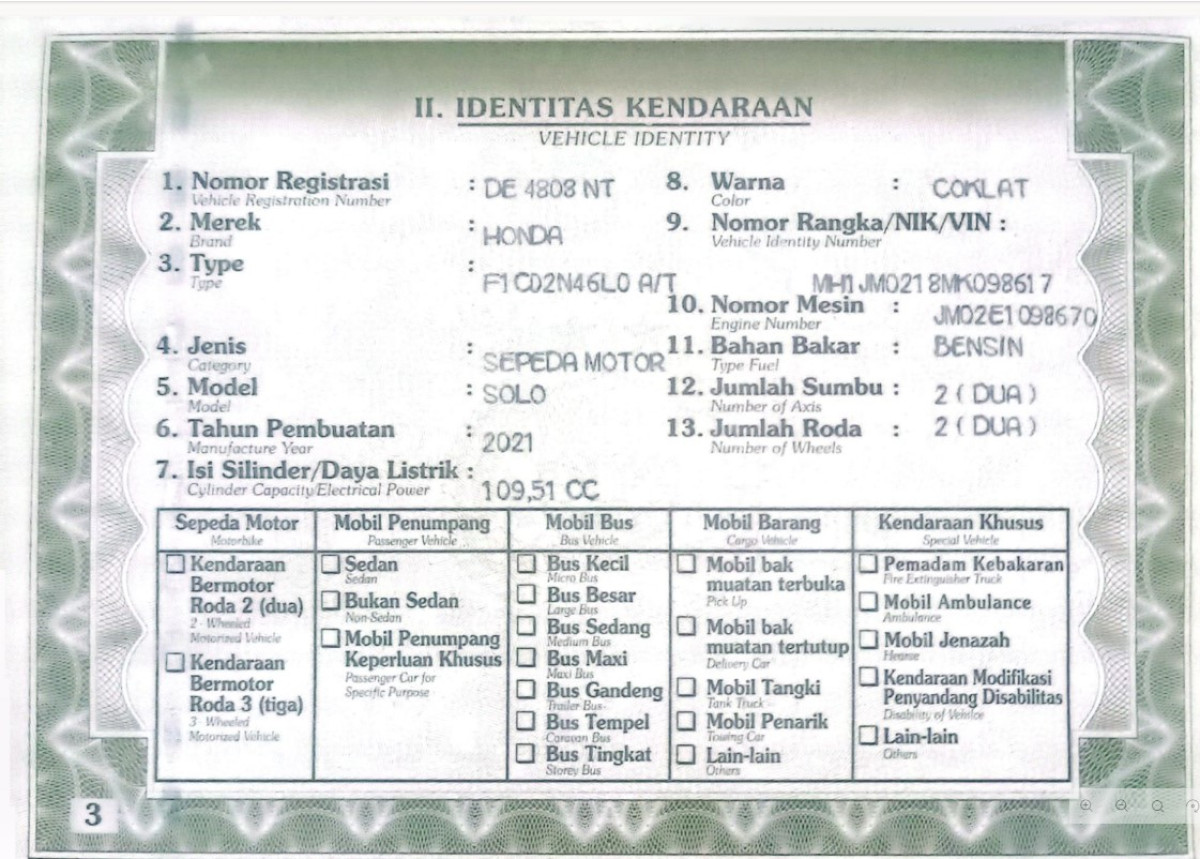 II. IDENTITAS KENDARAAN
VEHICLE IDENTITY
1. Nomor Registrasi : DE 4808 NT
Vehicle Registration Number
2. Merek : HONDA
Brand
3. Type : F1C02N46L0 A/T
Type
4. Jenis : SEPEDA MOTOR
Category
5. Model : SOLO
Model
6. Tahun Pembuatan : 2021
Manufacture Year
7. Isi Silinder/Daya Listrik : 109,51 CC
Cylinder Capacity/Electrical Power
8. Warna : COKLAT
Color
9. Nomor Rangka/NIK/VIN :
Vehicle Identity Number
MH1JM0218MK098617
10. Nomor Mesin : JM02E1098670
Engine Number
11. Bahan Bakar : BENSIN
Type Fuel
12. Jumlah Sumbu : 2 ( DUA )
Number of Axis
13. Jumlah Roda : 2 ( DUA )
Number of Wheels
Sepeda Motor
Motorbike
Kendaraan
Bermotor
Roda 2 (dua)
2 - Wheeled
Motorized Vehicle
Kendaraan
Bermotor
Roda 3 (tiga)
3 - Wheeled
Motorized Vehicle
Mobil Penumpang
Passenger Vehicle
Sedan
Sedan
Bukan Sedan
Non-Sedan
Mobil Penumpang
Keperluan Khusus
Passenger Car for
Specific Purpose
Mobil Bus
Bus Vehicle
Bus Kecil
Micro Bus
Bus Besar
Large Bus
Bus Sedang
Medium Bus
Bus Maxi
Maxi Bus
Bus Gandeng
Trailer Bus
Bus Tempel
Caravan Bus
Bus Tingkat
Storey Bus
Mobil Barang
Cargo Vehicle
Mobil bak
muatan terbuka
Pick Up
Mobil bak
muatan tertutup
Delivery Car
Mobil Tangki
Tank Truck
Mobil Penarik
Towing Car
Lain-lain
Others
Kendaraan Khusus
Special Vehicle
Pemadam Kebakaran
Fire Extinguisher Truck
Mobil Ambulance
Ambulance
Mobil Jenazah
Hearse
Kendaraan Modifikasi
Penyandang Disabilitas
Disability of Vehilce
Lain-lain
Others
3